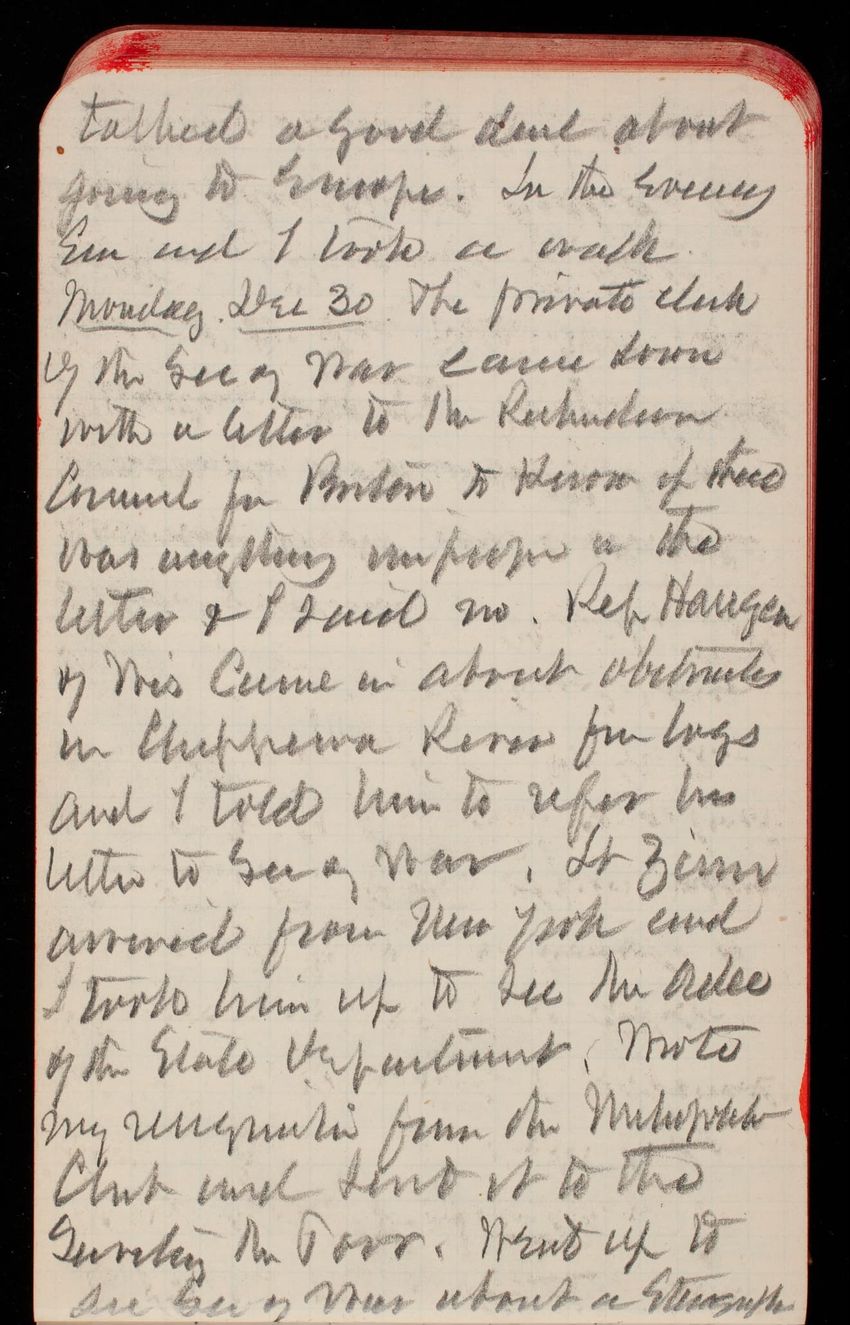 talked a good deal about
going to Europe. In the Evening
Em and I took a walk.
Monday. Dec 30. The private clerk
of the Sec of War came down
with a letter to the
Council for Boston to Know if there
was anything improper in the
letter & I said no. Rep Haugen
of Wis Came in about obstructs
in Chippewa River from logs
and I told him to refer his
letter to Sec of War. Lt Zinn
arrived from New York and
I took him up to see the
of the State Department. Wrote
my resignation from the Metropolitan
Club and sent it to the
Secretary Mr Tarr. Went up to
see Sec of War about a